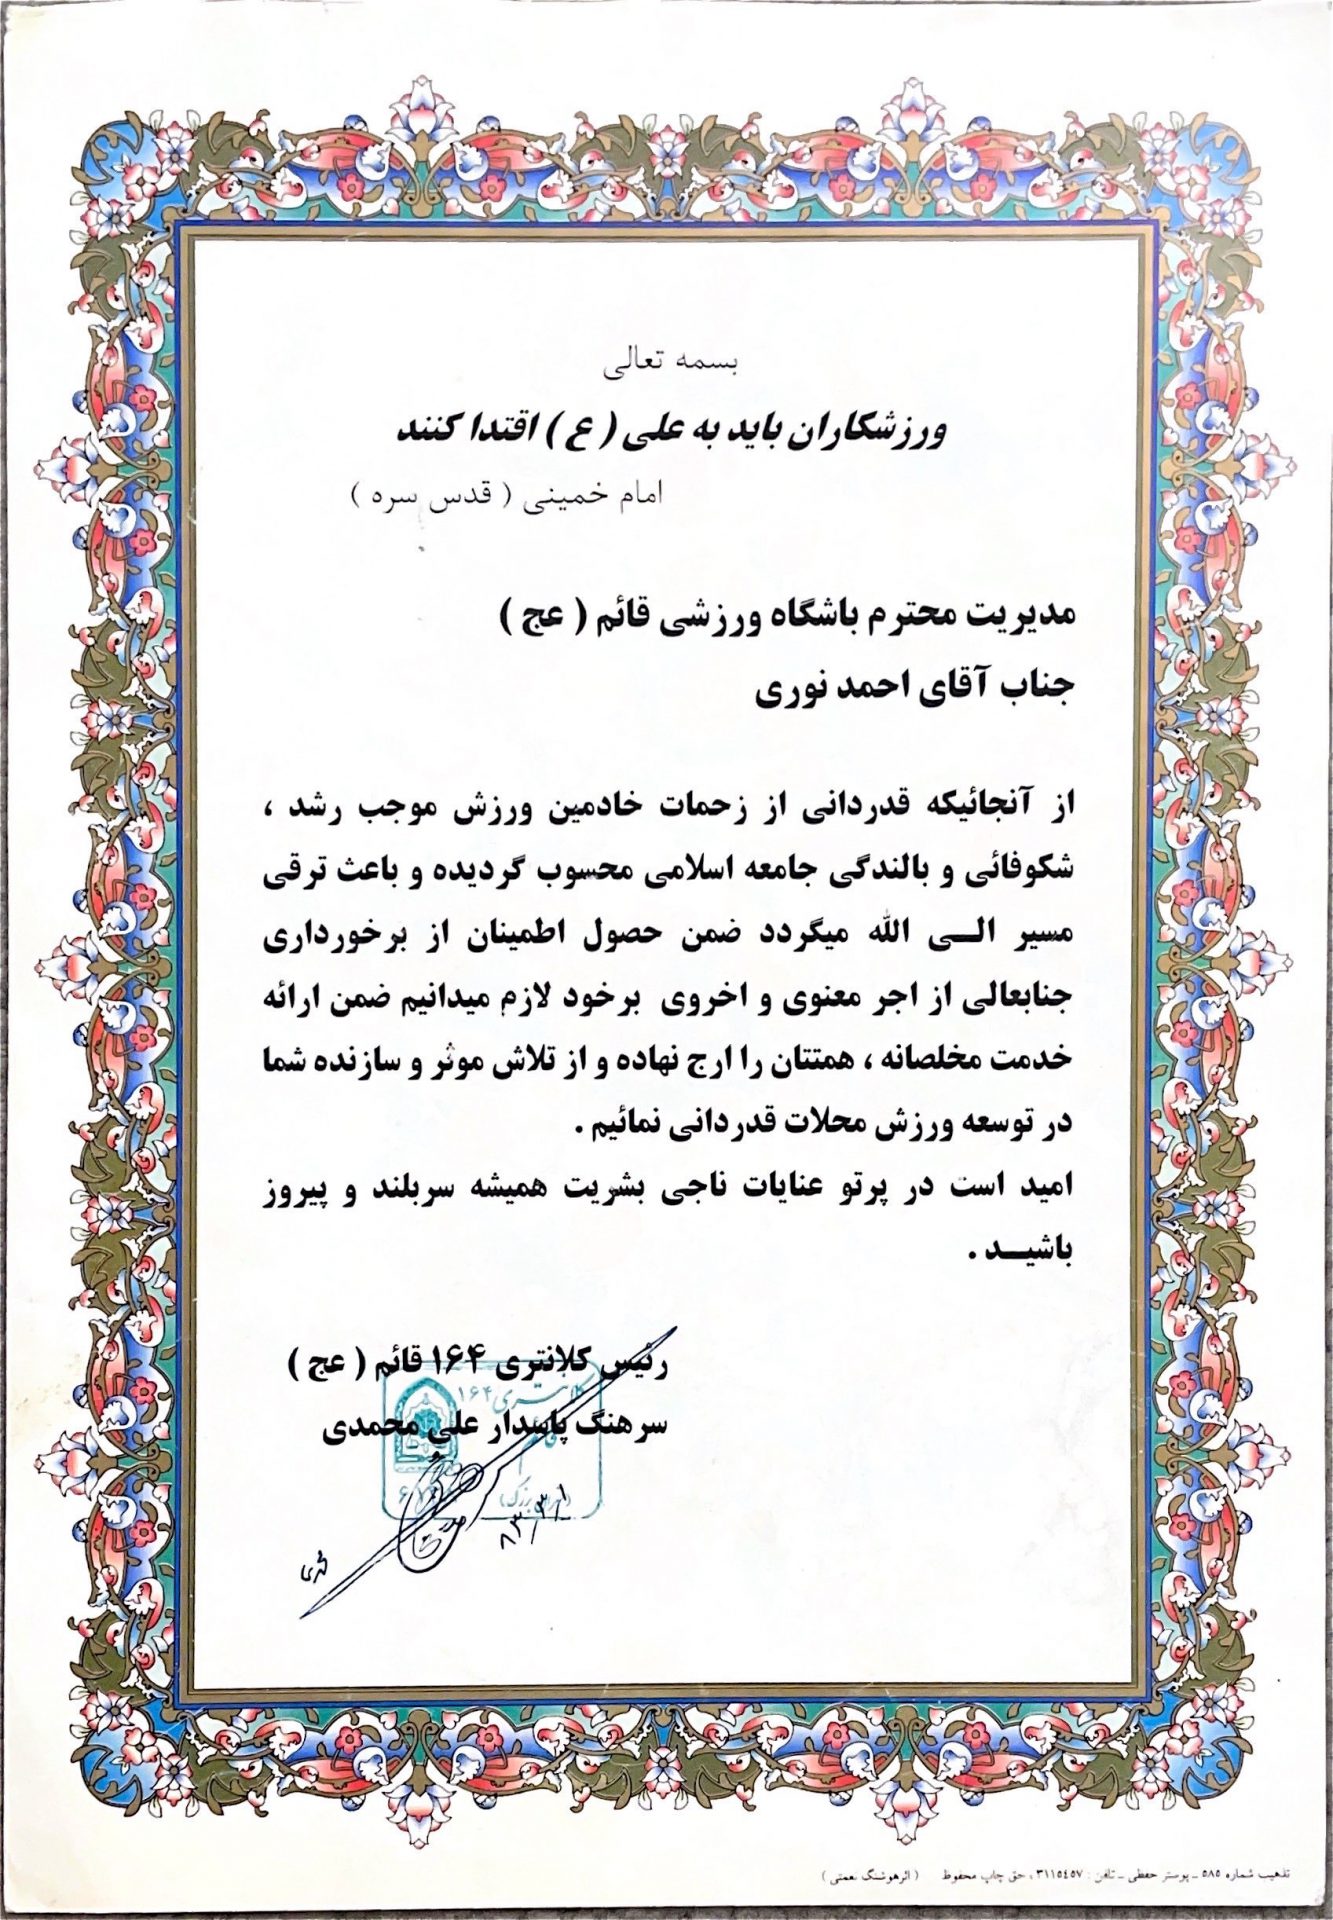 بسمه تعالی
ورزشکاران باید به علی ( ع ) اقتدا کنند
امام خمینی ( قدس سره )
مدیریت محترم باشگاه ورزشی قائم ( عج )
جناب آقای احمد نوری
از آنجائیکه قدردانی از زحمات خادمین ورزش موجب رشد ،
شکوفائی و بالندگی جامعه اسلامی محسوب گردیده و باعث ترقی
مسیر الـی الله میگردد ضمن حصول اطمینان از برخورداری
جنابعالی از اجر معنوی و اخروی برخود لازم میدانیم ضمن ارائه
خدمت مخلصانه ، همتتان را ارج نهاده و از تلاش موثر و سازنده شما
در توسعه ورزش محلات قدردانی نمائیم .
امید است در پرتو عنایات ناجی بشریت همیشه سربلند و پیروز
باشیـد .
رئیس کلانتری ۱۶۴ قائم ( عج )
سرهنگ پاسدار علی محمدی
کلانتری ۱۶۴
قائم
۸۳/۳/۱
تذهیب شماره ۵۸۵ ـ پوستر حفظی ـ تلفن : ۳۱۱۵۴۵۷ ، حق چاپ محفوظ ( اثرهوشنگ نعمتی )